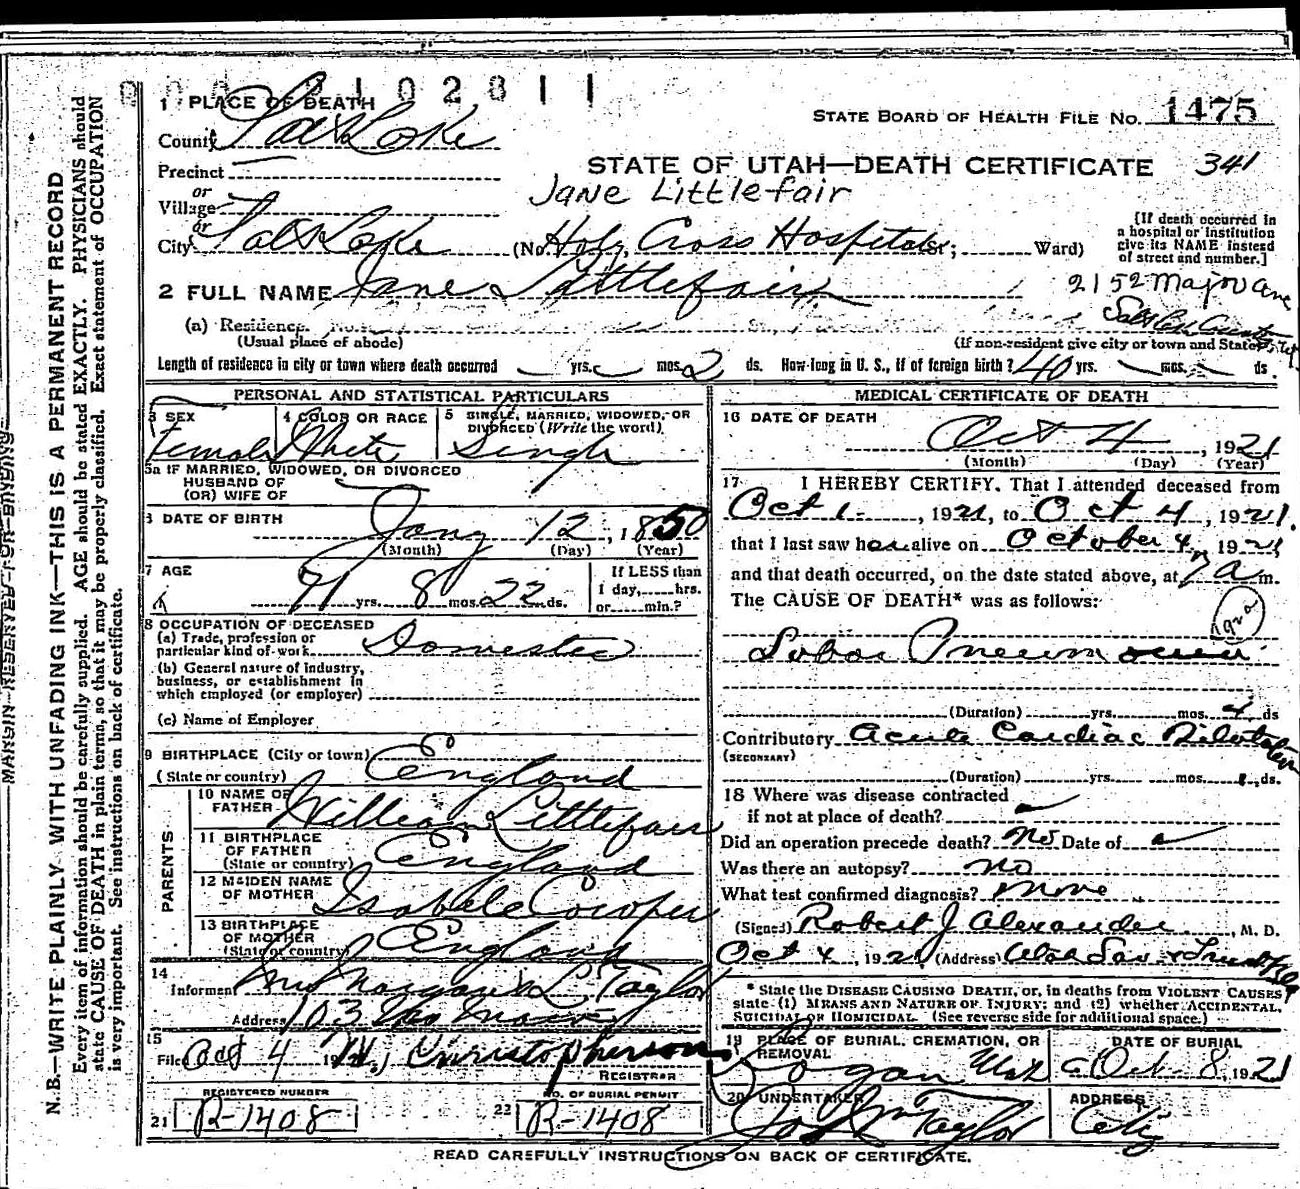 1 PLACE OF DEATH
County Salt Lake
STATE BOARD OF HEALTH FILE NO. 1475
Precinct
STATE OF UTAH—DEATH CERTIFICATE 341
or
Village
Jane Littlefair
or
City Salt Lake (No. Holy Cross Hospital St; Ward)
[If death occurred in
a hospital or institution
give its NAME instead
of street and number.]
2 FULL NAME Jane Littlefair
2152 Major Ave
(a) Residence. No.
(Usual place of abode)
(If non-resident give city or town and State)
Length of residence in city or town where death occurred yrs. mos. 2 ds. How long in U. S., if of foreign birth? 40 yrs. mos. ds.
PERSONAL AND STATISTICAL PARTICULARS
3 SEX
Female
4 COLOR OR RACE
White
5 SINGLE, MARRIED, WIDOWED, OR
DIVORCED (Write the word)
Single
5a IF MARRIED, WIDOWED, OR DIVORCED
HUSBAND OF
(OR) WIFE OF
6 DATE OF BIRTH Jany 12, 1850
(Month) (Day) (Year)
7 AGE
71 yrs. 8 mos. 22 ds.
If LESS than
1 day, hrs.
or min.?
8 OCCUPATION OF DECEASED
(a) Trade, profession or
particular kind of work Domestic
(b) General nature of industry,
business, or establishment in
which employed (or employer)
(c) Name of Employer
9 BIRTHPLACE (City or town)
(State or country) England
PARENTS
10 NAME OF
FATHER William Littlefair
11 BIRTHPLACE
OF FATHER
(State or country) England
12 MAIDEN NAME
OF MOTHER Isabele Cowper
13 BIRTHPLACE
OF MOTHER
(State or country) England
14
Informant L Taylor
Address 103
15
Filed Oct 4 192 Christopherson
REGISTRAR
REGISTERED NUMBER
21 R-1408
NO. OF BURIAL PERMIT
22 R-1408
MEDICAL CERTIFICATE OF DEATH
16 DATE OF DEATH
Oct 4, 1921
(Month) (Day) (Year)
17 I HEREBY CERTIFY, That I attended deceased from
Oct 1, 1921, to Oct 4, 1921.
that I last saw her alive on October 4, 1921
and that death occurred, on the date stated above, at 7 a m.
The CAUSE OF DEATH* was as follows:
Lobar Pneumonia
(Duration) yrs. mos. 4 ds
Contributory Acute Cardiac Dilatation
(SECONDARY)
(Duration) yrs. mos. 1 ds.
18 Where was disease contracted
if not at place of death?
Did an operation precede death? No Date of
Was there an autopsy? no
What test confirmed diagnosis? none
(Signed) Robert J Alexander, M. D.
Oct 4, 1921 (Address) Utah Sav & Trust
* State the DISEASE CAUSING DEATH, or, in deaths from VIOLENT CAUSES
state (1) MEANS AND NATURE OF INJURY; and (2) whether ACCIDENTAL,
SUICIDAL OR HOMICIDAL. (See reverse side for additional space.)
19 PLACE OF BURIAL, CREMATION, OR
REMOVAL
Logan Utah
DATE OF BURIAL
Oct 8, 1921
20 UNDERTAKER
Taylor
ADDRESS
City
READ CAREFULLY INSTRUCTIONS ON BACK OF CERTIFICATE.
MARGIN RESERVED FOR BINDING
N.B.—WRITE PLAINLY, WITH UNFADING INK—THIS IS A PERMANENT RECORD
Every item of information should be carefully supplied. AGE should be stated EXACTLY. PHYSICIANS should
state CAUSE OF DEATH in plain terms, so that it may be properly classified. Exact statement of OCCUPATION
is very important. See instructions on back of certificate.